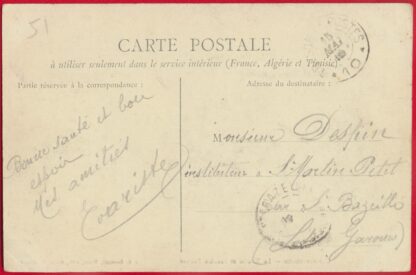 51
CARTE POSTALE
à utiliser seulement dans le service intérieur (France, Algérie et Tunisie)
Partie réservée à la correspondance :
Adresse du destinataire :
Bonne santé et bon
espoir
Mes amitiés
Evariste
Monsieur Despin
instituteur à St Martin Petit
par St Bazeille
Garonne